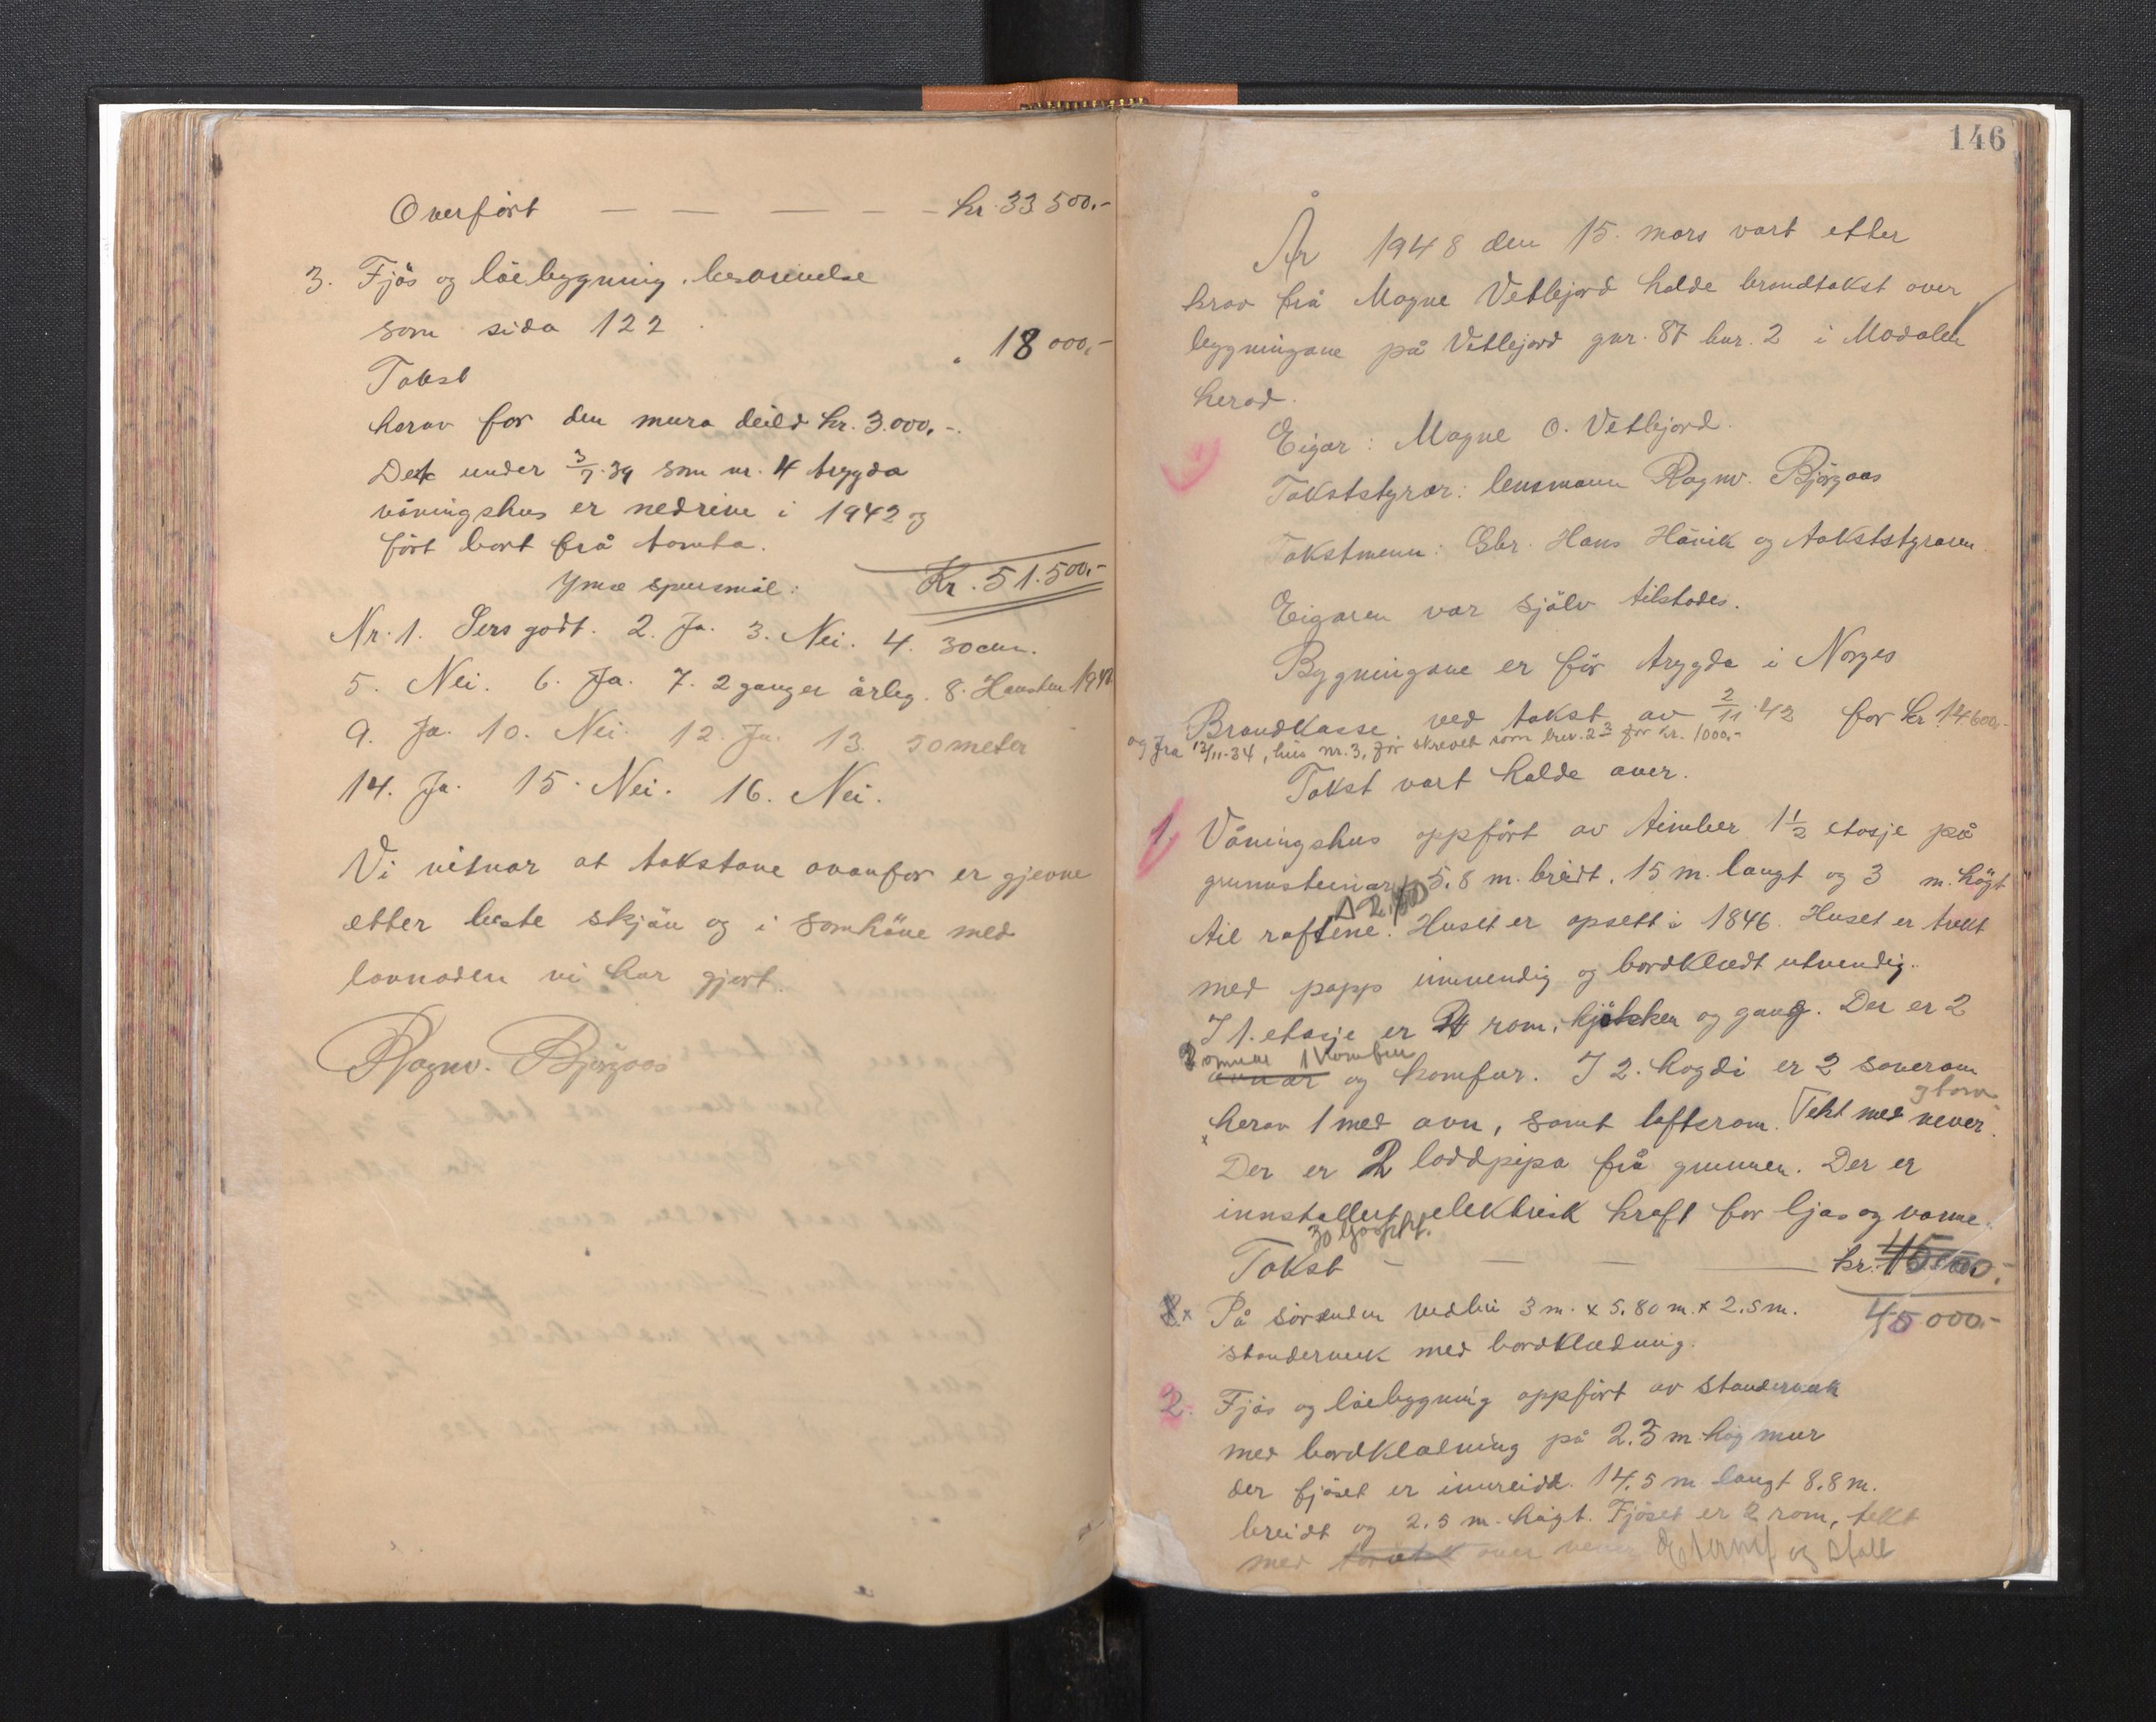 Overfört — — — — — kr. 33 500.-
3. Fjös og löebygning, beskrivelse
som sida 122.
" 18 000,-
Takst
herav for den mura deild kr. 3.000,-.
Det under 3/7-39 som nr. 4 trygda
våningshus er nedrive i 1942 og
fört bort frå tomta.
Ymse spursmål: Kr. 51.500,-
Nr. 1. Sers godt. 2. Ja. 3. Nei. 4. 30 cm.
5. Nei. 6. Ja. 7. 2 ganger årleg. 8. Hausten 1947
9. Ja. 10. Nei. 12. Ja. 13. 50 meter
14. Ja. 15. Nei. 16. Nei.
Vi vitnar at takstane ovanfor er gjevne
etter beste skjön og i samhöve med
lovnaden vi har gjort.
Ragnv. Björgaas
146
År 1948 den 15. mars vart etter
krav frå Magne Vetlejord halde brandtakst over
bygningane på Vetlejord gnr. 87 bnr. 2 i Modalen
herad.
Eigar: Magne O. Vetlejord.
Takststyrar: lensmann Ragnv. Björgaas
Takstmenn: Gbr. Hans Hövik og takststyraren
Eigaren var sjölv tilstades.
Bygningane er för trygda i Norges
Brandkasse ved takst av 2/11 42 for kr 14600,-
og fra 12/11-34, hus nr. 3, för skrevet som brev. 23 for kr. 1000,-
Takst vart halde over.
1. Våningshus oppfört av timber 1½ etasje på
grunnsteinar, 5.8 m. breidt, 15 m. langt og 3 m. högt
til raftene. Huset er opsett i 1846. Huset er trekt
med papp innvendig og bordklædt utvendig.
I 1. etasje er 4 rom, kjökken og gang. Der er 2
2 omnar 1 komfur
ovnar og komfur. I 2. högdi er 2 soverom
og torv
herav 1 med ovn, samt loftsrom. Tekt med never
Der er 2 loddpipa frå grunnen. Der er
innstallert elektrisk kraft for ljos og varme.
30 ljospkt.
Takst — — — kr. 15000.-
x På sörenden vedbu 3 m. x 5.80 m. x 2.5 m. 45 000.-
standerverk med bordklædning.
2. Fjös og löebygning oppfört av standerverk
med bordklædning på 2.3 m. hög mur
der fjöset er innreidt. 14.5 m. langt 8.8 m.
breidt og 2.5 m. högt. Fjöset er 2 rom, tekt
med over never og stall